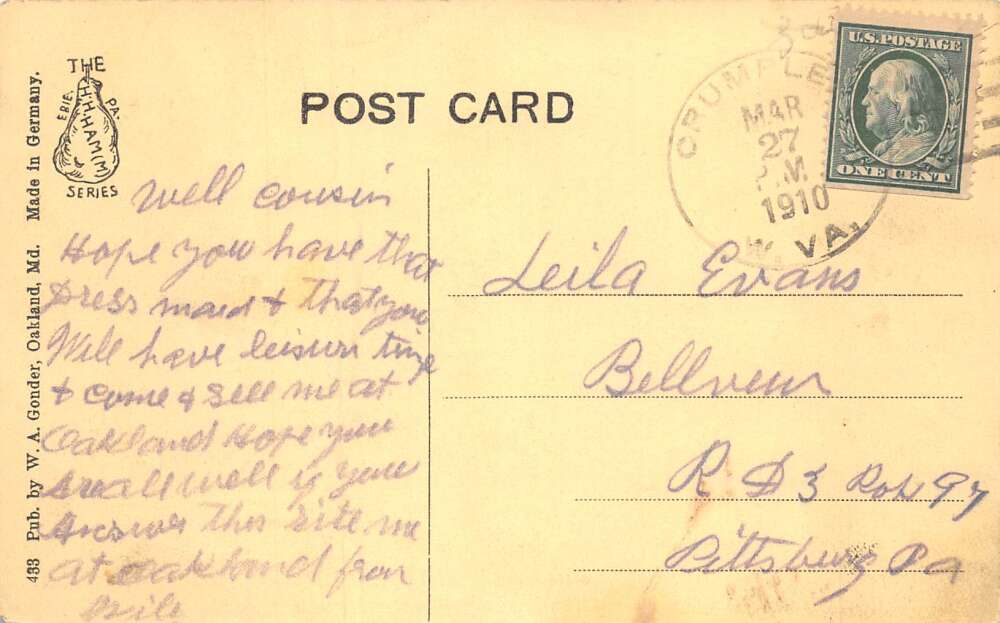 THE
ERIE, PA.
H.H. HAMM
SERIES
POST CARD
CRUMP LE
MAR
27
P.M
1910
W. VA.
U.S. POSTAGE
ONE CENT
433 Pub. by W. A. Gonder, Oakland, Md. Made in Germany.
Well cousin
Hope you have that
Dress maid & that you
Will have leisurn time
& come & see me at
Oakland Hope you
are all well if you
Answer this
at Oakland from
Leila Evans
Bellveur
R D 3 Box 97
Pittsburg Pa